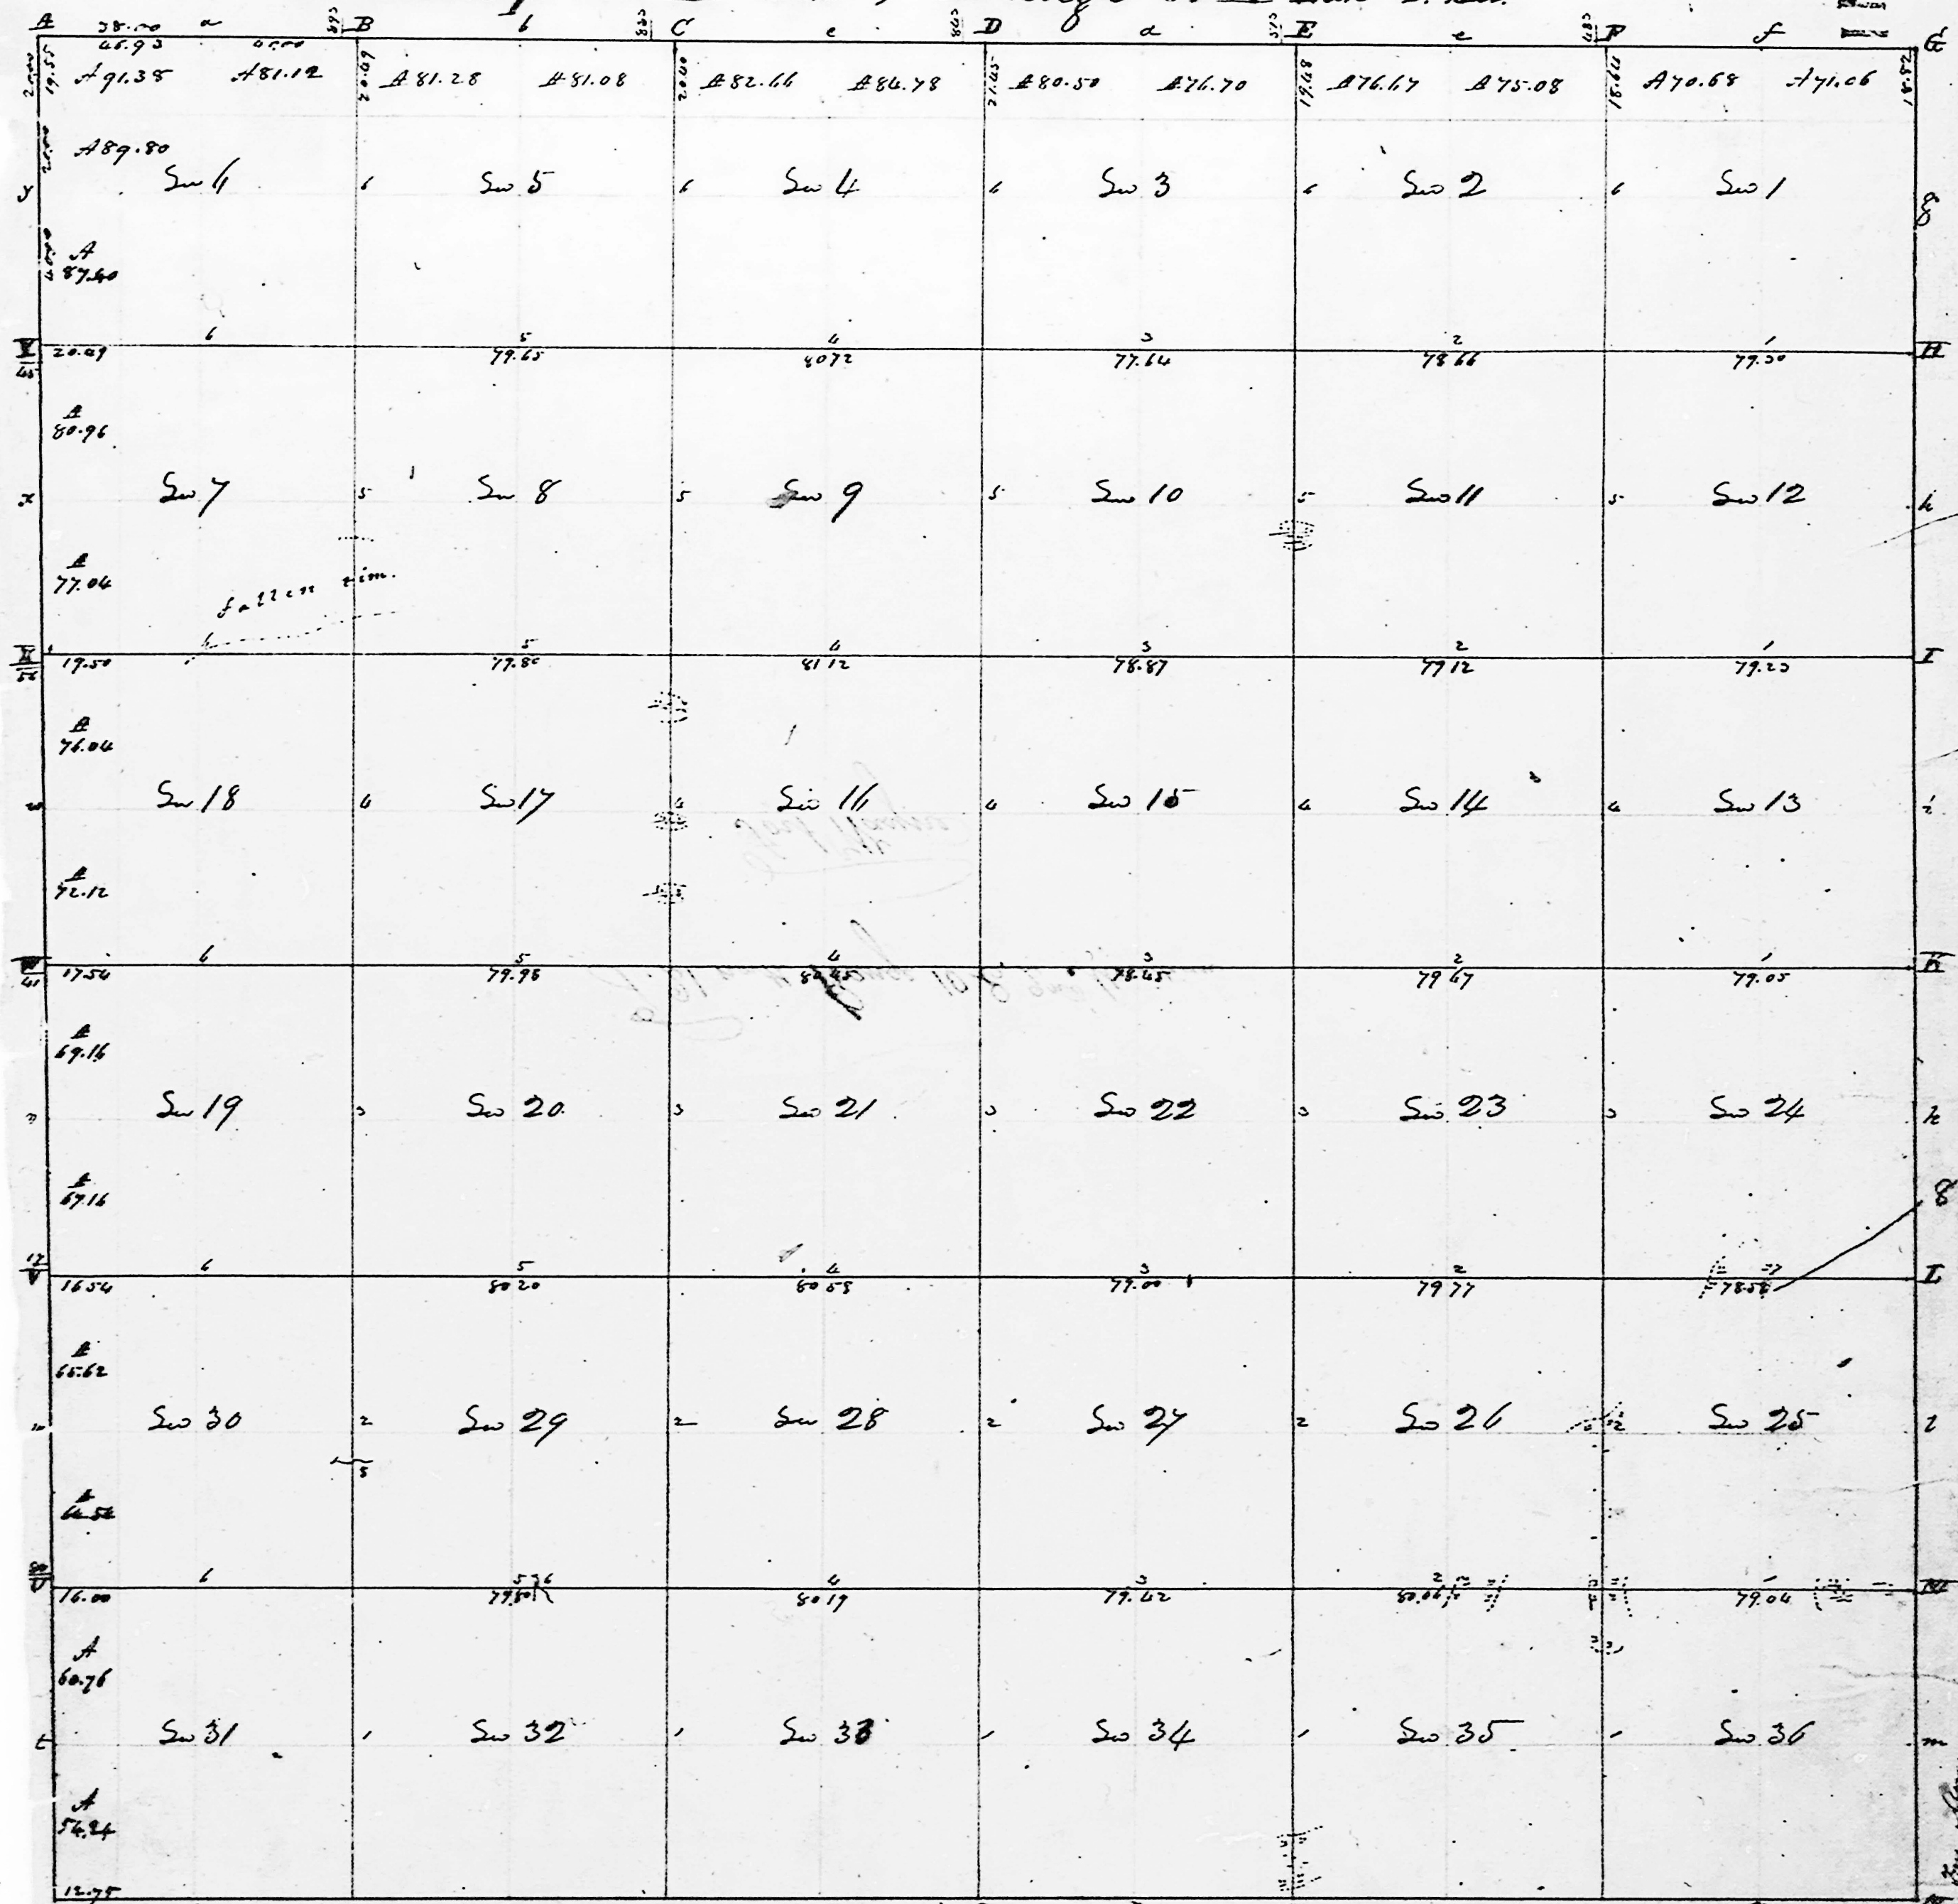 A 38.00 a B b C c D d E e F f G
45.93 40.00
19.55 A 91.38 A 81.12 20.49 A 81.28 A 81.08 20.40 A 82.66 A 84.78 21.45 A 80.50 A 76.70 19.48 A 76.67 A 75.08 18.64 A 70.68 A 71.06 18.82
A 89.80
y Sec 6 6 Sec 5 6 Sec 4 6 Sec 3 6 Sec 2 6 Sec 1 g
A
87.40
6 5 4 3 2 1
20.49 79.65 80 72 77.64 78 66 79.30 H
A
80.96
x Sec 7 5 Sec 8 5 Sec 9 5 Sec 10 5 Sec 11 5 Sec 12 h
A
77.04
fallen tim.
6 5 4 3 2 1
19.50 79.80 81 12 78.87 79 12 79.20 I
A
76.04
w Sec 18 4 Sec 17 4 Sec 16 4 Sec 15 4 Sec 14 4 Sec 13 i
A
72.12
6 5 4 3 2 1
17.54 79.98 78.45 79 47 79.05 K
A
69.16
Sec 19 3 Sec 20 3 Sec 21 3 Sec 22 3 Sec 23 3 Sec 24 k
A
67.16
8
6 5 4 3 2
V 16 54 80 20 80 58 77.00 79 77 78.58 L
A
65.62
Sec 30 2 Sec 29 2 Sec 28 2 Sec 27 2 Sec 26 2 Sec 25 l
5
A
6 5 4 3 2 1
16.00 79.80 80 19 79.42 80.06 79.04
A
60.76
t Sec 31 1 Sec 32 1 Sec 33 1 Sec 34 1 Sec 35 1 Sec 36 m
A
54.24
12.75